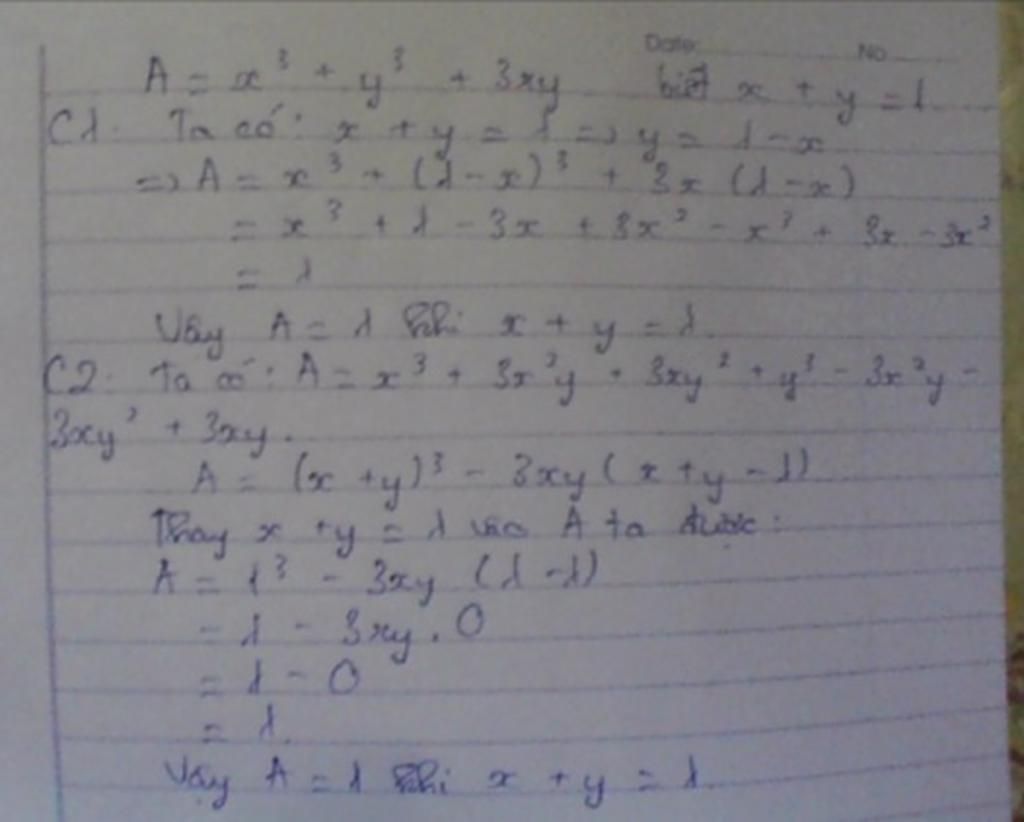 Date No
A = x³ + y³ + 3xy biết x + y = 1
C1. Ta có: x + y = 1 => y = 1 - x
=> A = x³ + (1 - x)³ + 3x (1 - x)
= x³ + 1 - 3x + 3x² - x³ + 3x - 3x²
= 1
Vậy A = 1 khi x + y = 1.
C2. Ta có: A = x³ + 3x²y + 3xy² + y³ - 3x²y -
3xy² + 3xy.
A = (x + y)³ - 3xy ( x + y - 1)
Thay x + y = 1 vào A ta được:
A = 1³ - 3xy (1 - 1)
= 1 - 3xy . 0
= 1 - 0
= 1.
Vậy A = 1 khi x + y = 1.